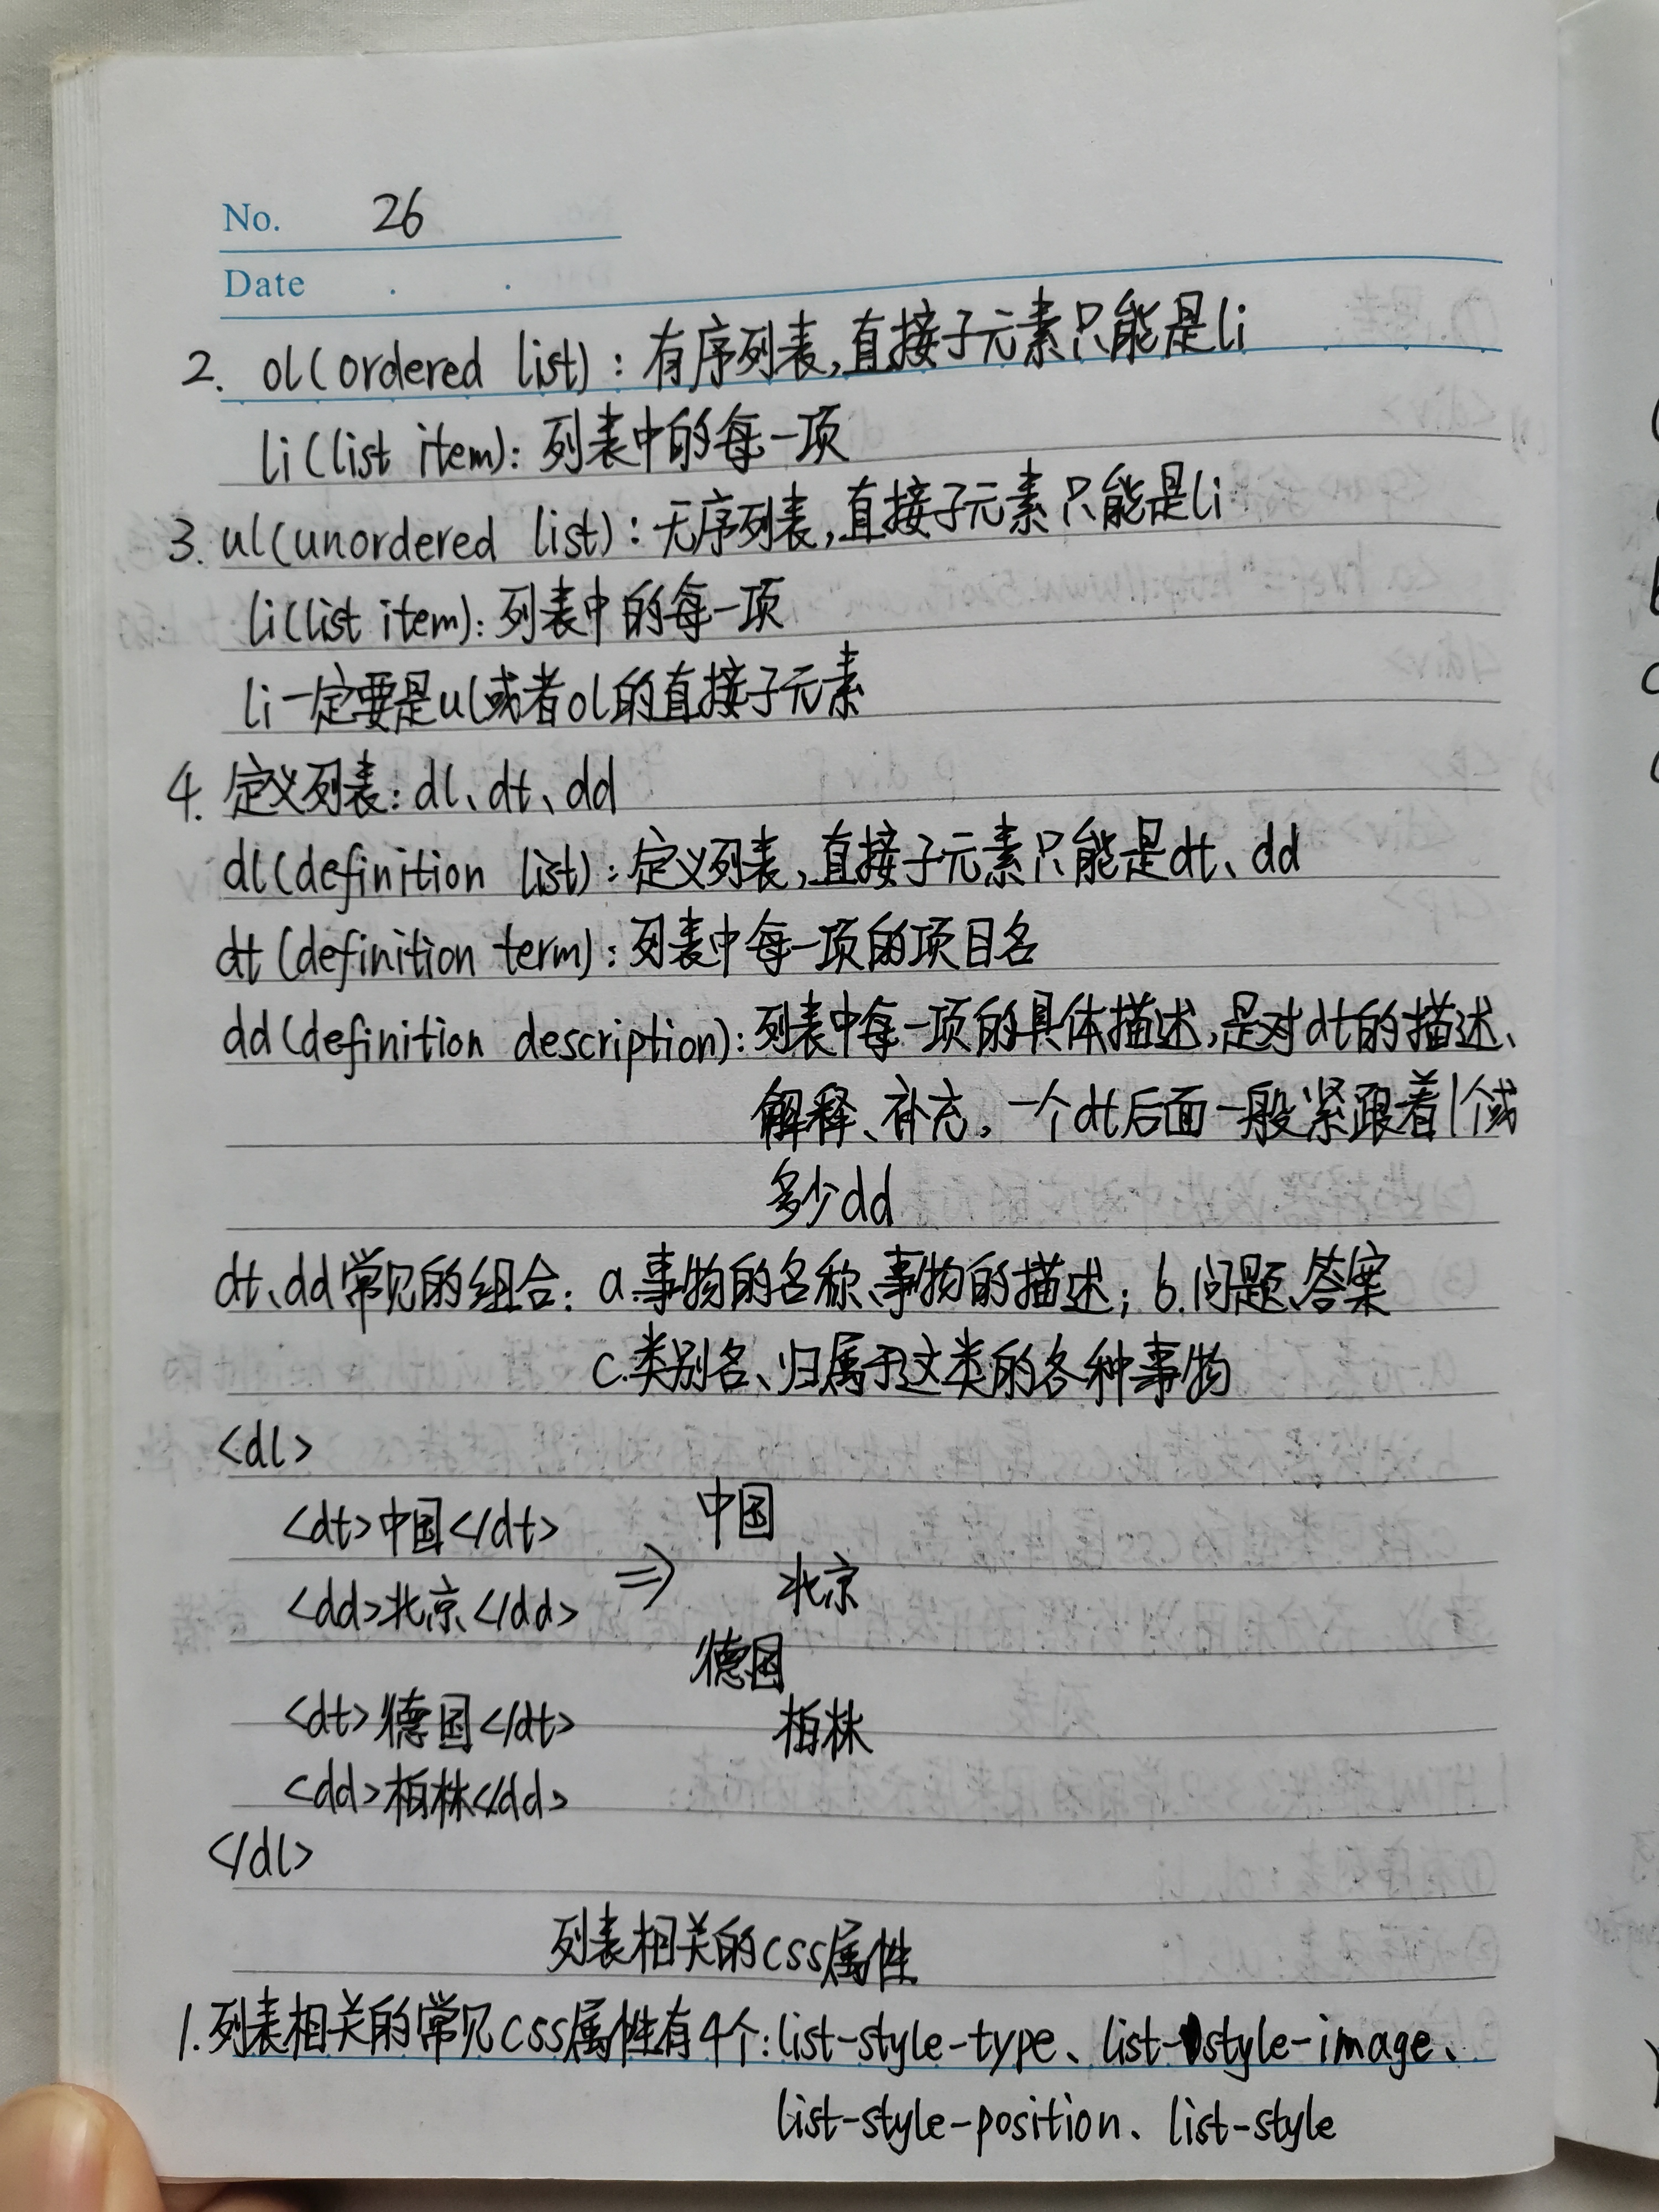 No. 26
Date . .
2. ol(ordered list)：有序列表,直接子元素只能是li
li(list item)：列表中的每一项
3. ul(unordered list)：无序列表,直接子元素只能是li
li(list item)：列表中的每一项
li一定要是ul或者ol的直接子元素
4. 定义列表：dl、dt、dd
dl(definition list)：定义列表,直接子元素只能是dt、dd
dt(definition term)：列表中每一项的项目名
dd(definition description)：列表中每一项的具体描述,是对dt的描述、
解释、补充。一个dt后面一般紧跟着1个或
多少dd
dt、dd常见的组合：a.事物的名称、事物的描述；b.问题、答案
c.类别名、归属于这类的各种事物
<dl>
<dt>中国</dt> 中国
<dd>北京</dd> ⇒ 北京
德国
<dt>德国</dt> 柏林
<dd>柏林</dd>
</dl>
列表相关的css属性
1.列表相关的常见css属性有4个：list-style-type、list-style-image、
list-style-position、list-style